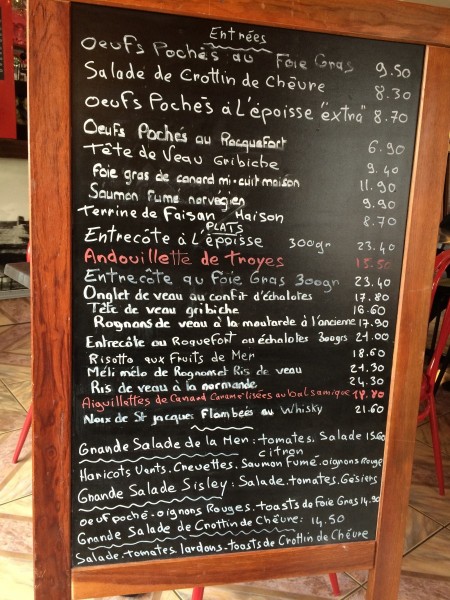 Entrées
Oeufs Pochés au Foie Gras 9.50
Salade de Crottin de Chêvre 8.30
Oeufs Pochés à L'époisse "extra" 8.70
Oeufs Pochés au Rocquefort 6.90
Tête de Veau Gribiche 9.40
Foie gras de canard mi-cuit maison 11.90
Saumon Fumé norvegien 9.90
Terrine de Faisan Maison 8.70
PLATS
Entrecôte à L'époisse 300gr 23.40
Andouillette de Troyes 15.50
Entrecôte au Foie Gras 300gr 23.40
Onglet de veau au confit d'échalotes 17.80
Tête de veau gribiche 16.60
Rognons de veau à la moutarde à l'ancienne 17.90
Entrecôte au Roquefort ou échalotes 300grs 21.00
Risotto aux Fruits de Mer 18.60
Méli mélo de Rognon et Ris de veau 21.30
Ris de veau à la normande 24.30
Aiguillettes de Canard Caramelisées au balsamique 18.80
Noix de St jacques Flambées au Whisky 21.60
Grande Salade de la Mer : tomates. Salade 15.60
citron
Haricots Verts. Crevettes. Saumon Fumé. oignons Rouge
Grande Salade Sisley : Salade. tomates. Gésiers
oeuf poché. oignons Rouges. toasts de Foie Gras 14.90
Grande Salade de Crottin de Chêvre : 14.50
Salade. tomates. lardons. toasts de Crottin de Chêvre